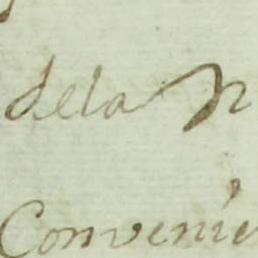 dela n
Convenie